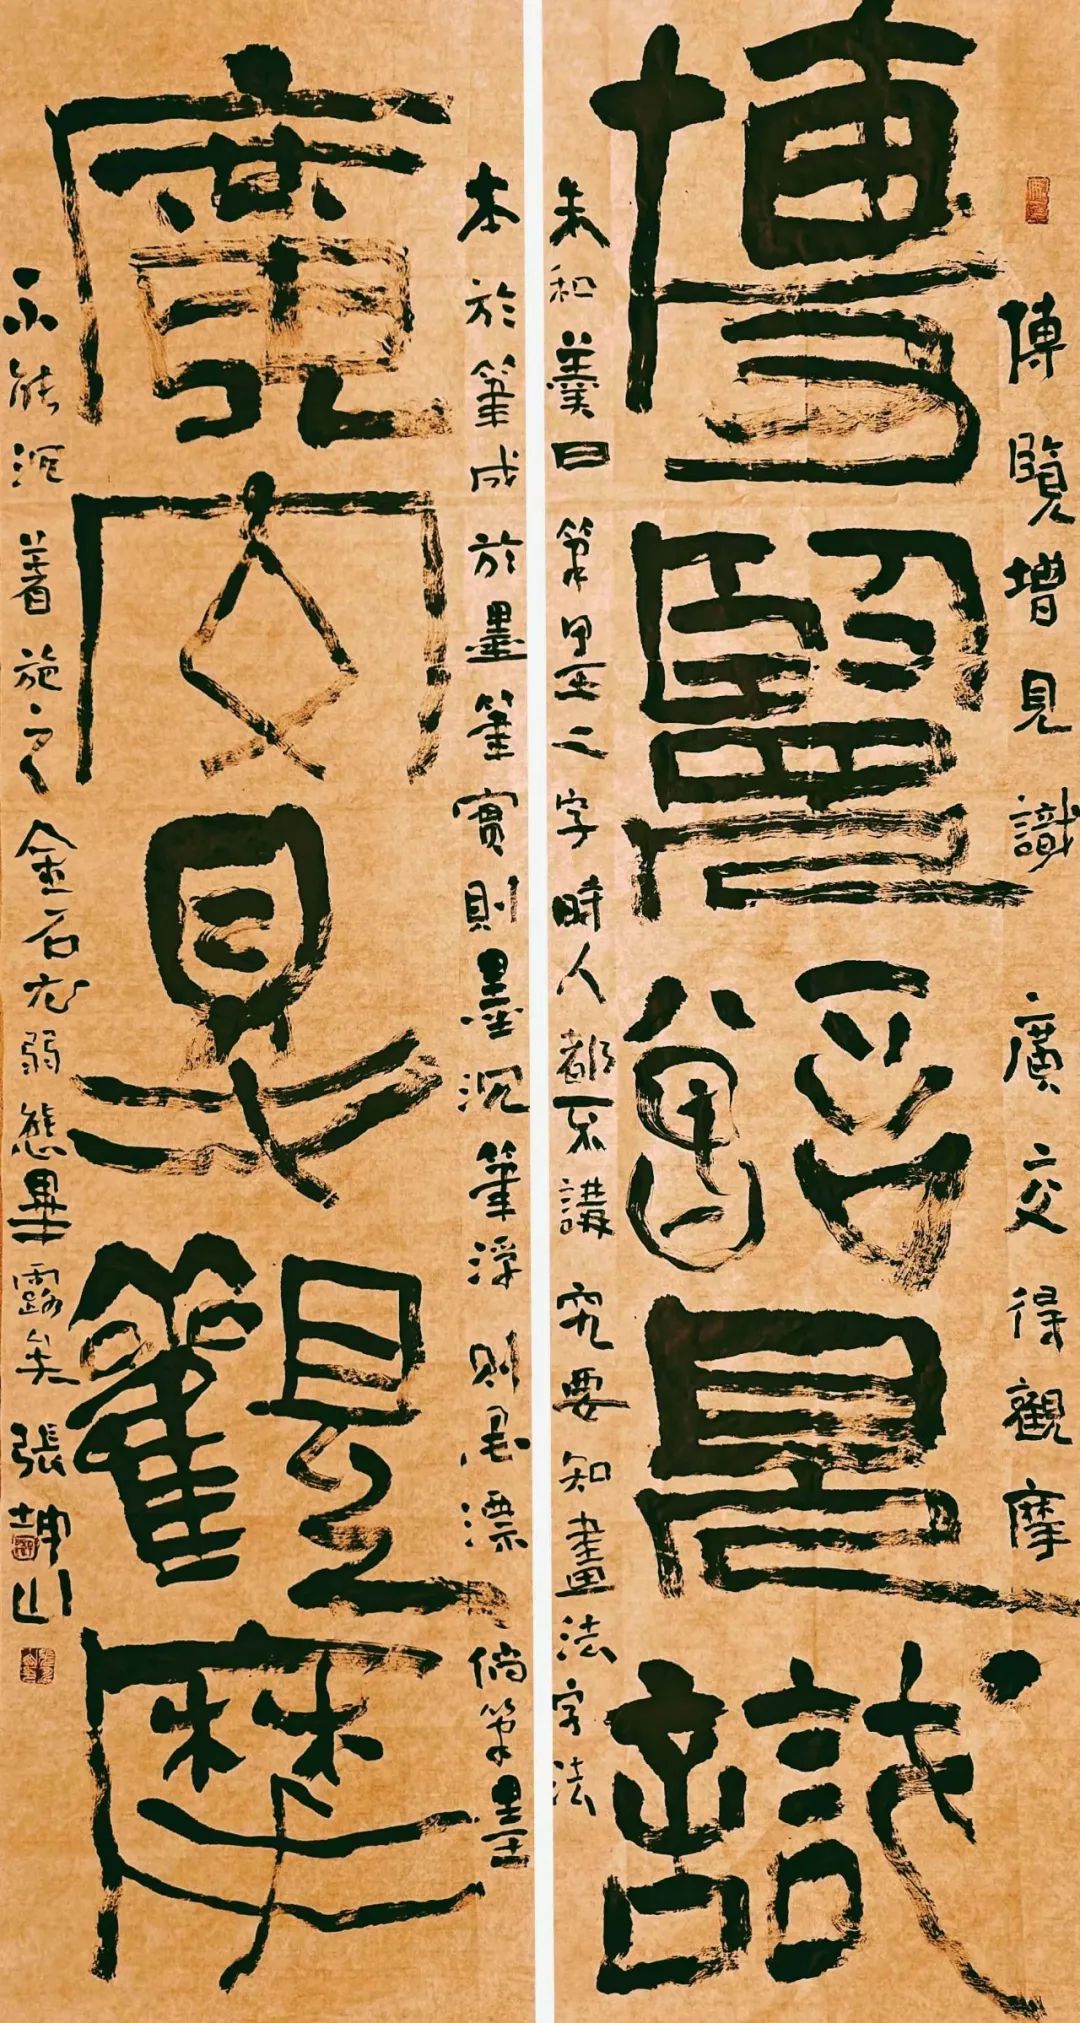 博覽增見識 廣交得觀摩
博覽增見識
朱和羹曰笔墨二字時人都不講究要知畫法字法
本於筆成於墨筆實則墨沉筆浮則墨漂倘笔墨
廣交得觀摩
不能沉著施之金石尤弱態畢露矣 張坤山